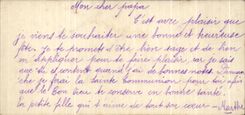 Mon cher papa
C'est avec plaisir que
je viens te souhaiter une bonne et heureuse
fête. Je te promets d'être bien sage et de bien
m'appliquer pour te faire plaisir car je sais
que tu es content quand j'ai de bonnes notes. Dimanche
je ferai la Sainte Communion pour toi afin
que le bon Dieu te conserve en bonne santé.
Ta petite fille qui t'aime de tout son cœur – Marthe